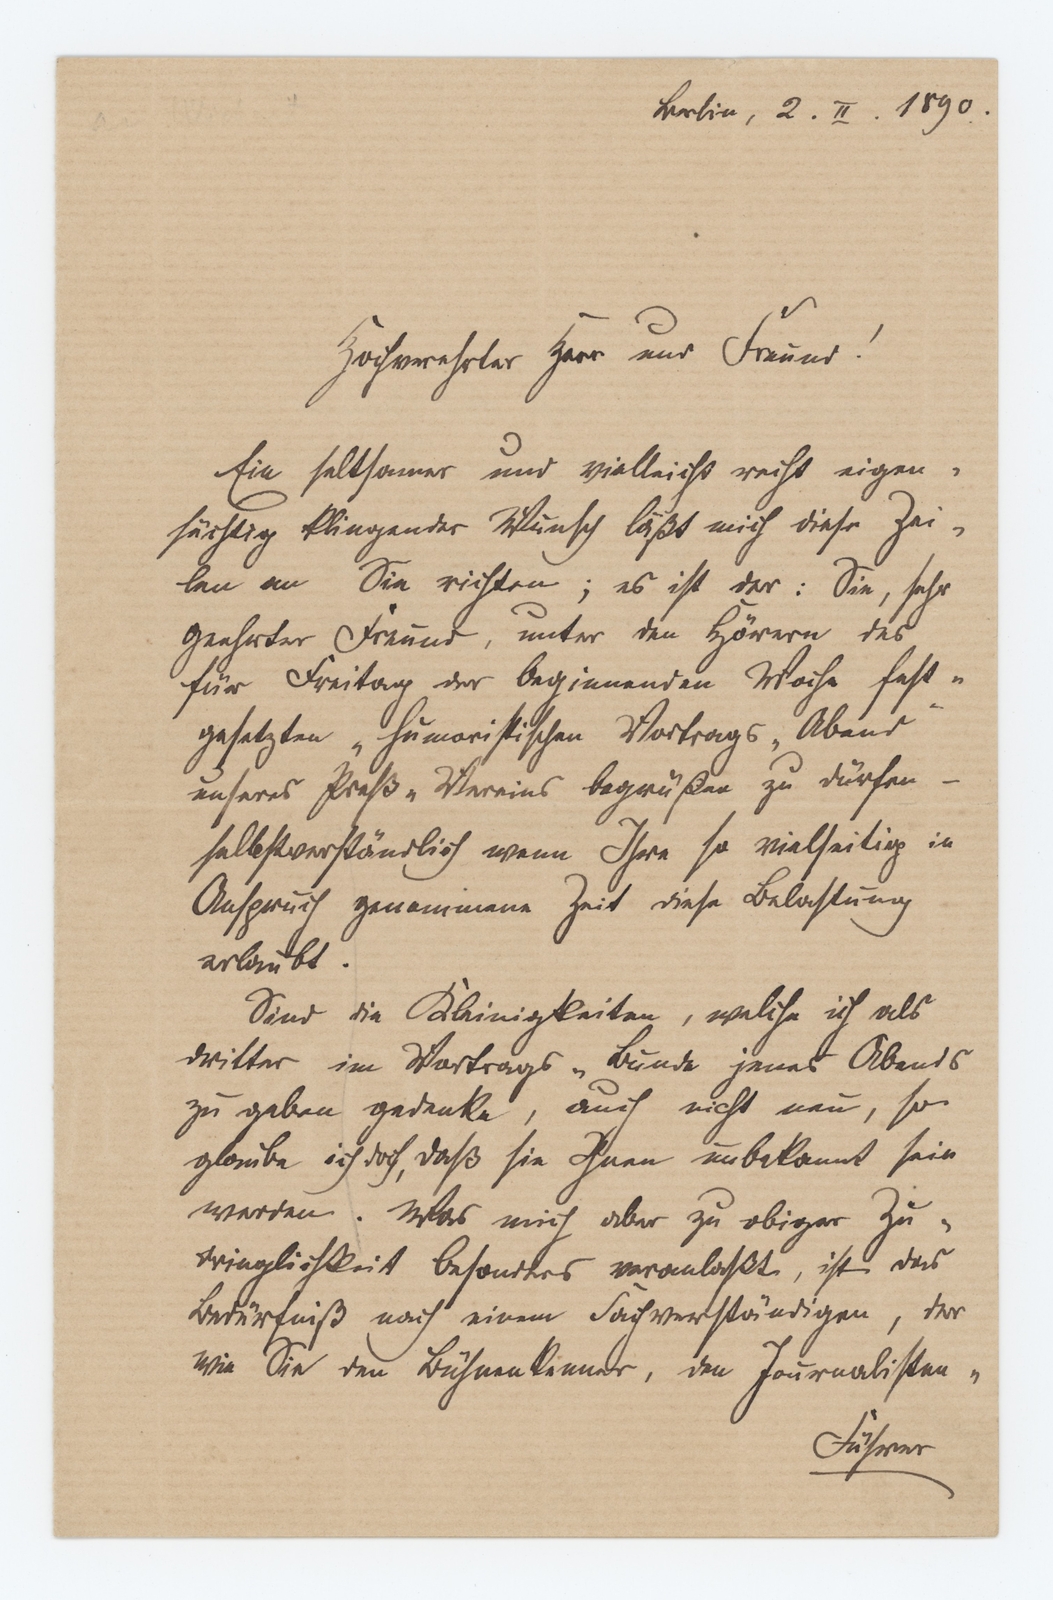 Berlin, 2. II. 1890.
Hochverehrter Herr und Freund!
Ein seltsamer und vielleicht recht eigen-
süchtig klingender Wunsch läßt mich diese Zei-
len an Sie richten; es ist der: Sie, sehr
geehrter Freund, unter den Hörern des
für Freitag der beginnenden Woche fest-
gesetzten „humoristischen Vortrags-Abend"
unseres Preß-Vereins begrüßen zu dürfen –
selbstverständlich wenn Ihre so vielseitig in
Anspruch genommene Zeit diese Belastung
erlaubt.
Sind die Kleinigkeiten, welche ich als
dritter im Vortrags-Bunde jenes Abends
zu geben gedenke, auch nicht neu, so
glaube ich doch, daß sie Ihnen unbekannt sein
werden. Was mich aber zu obiger Zu-
dringlichkeit besonders veranlaßt, ist das
Bedürfniß nach einem Sachverständigen, der
wie Sie den Bühnenkenner, den Journalisten-
Führer